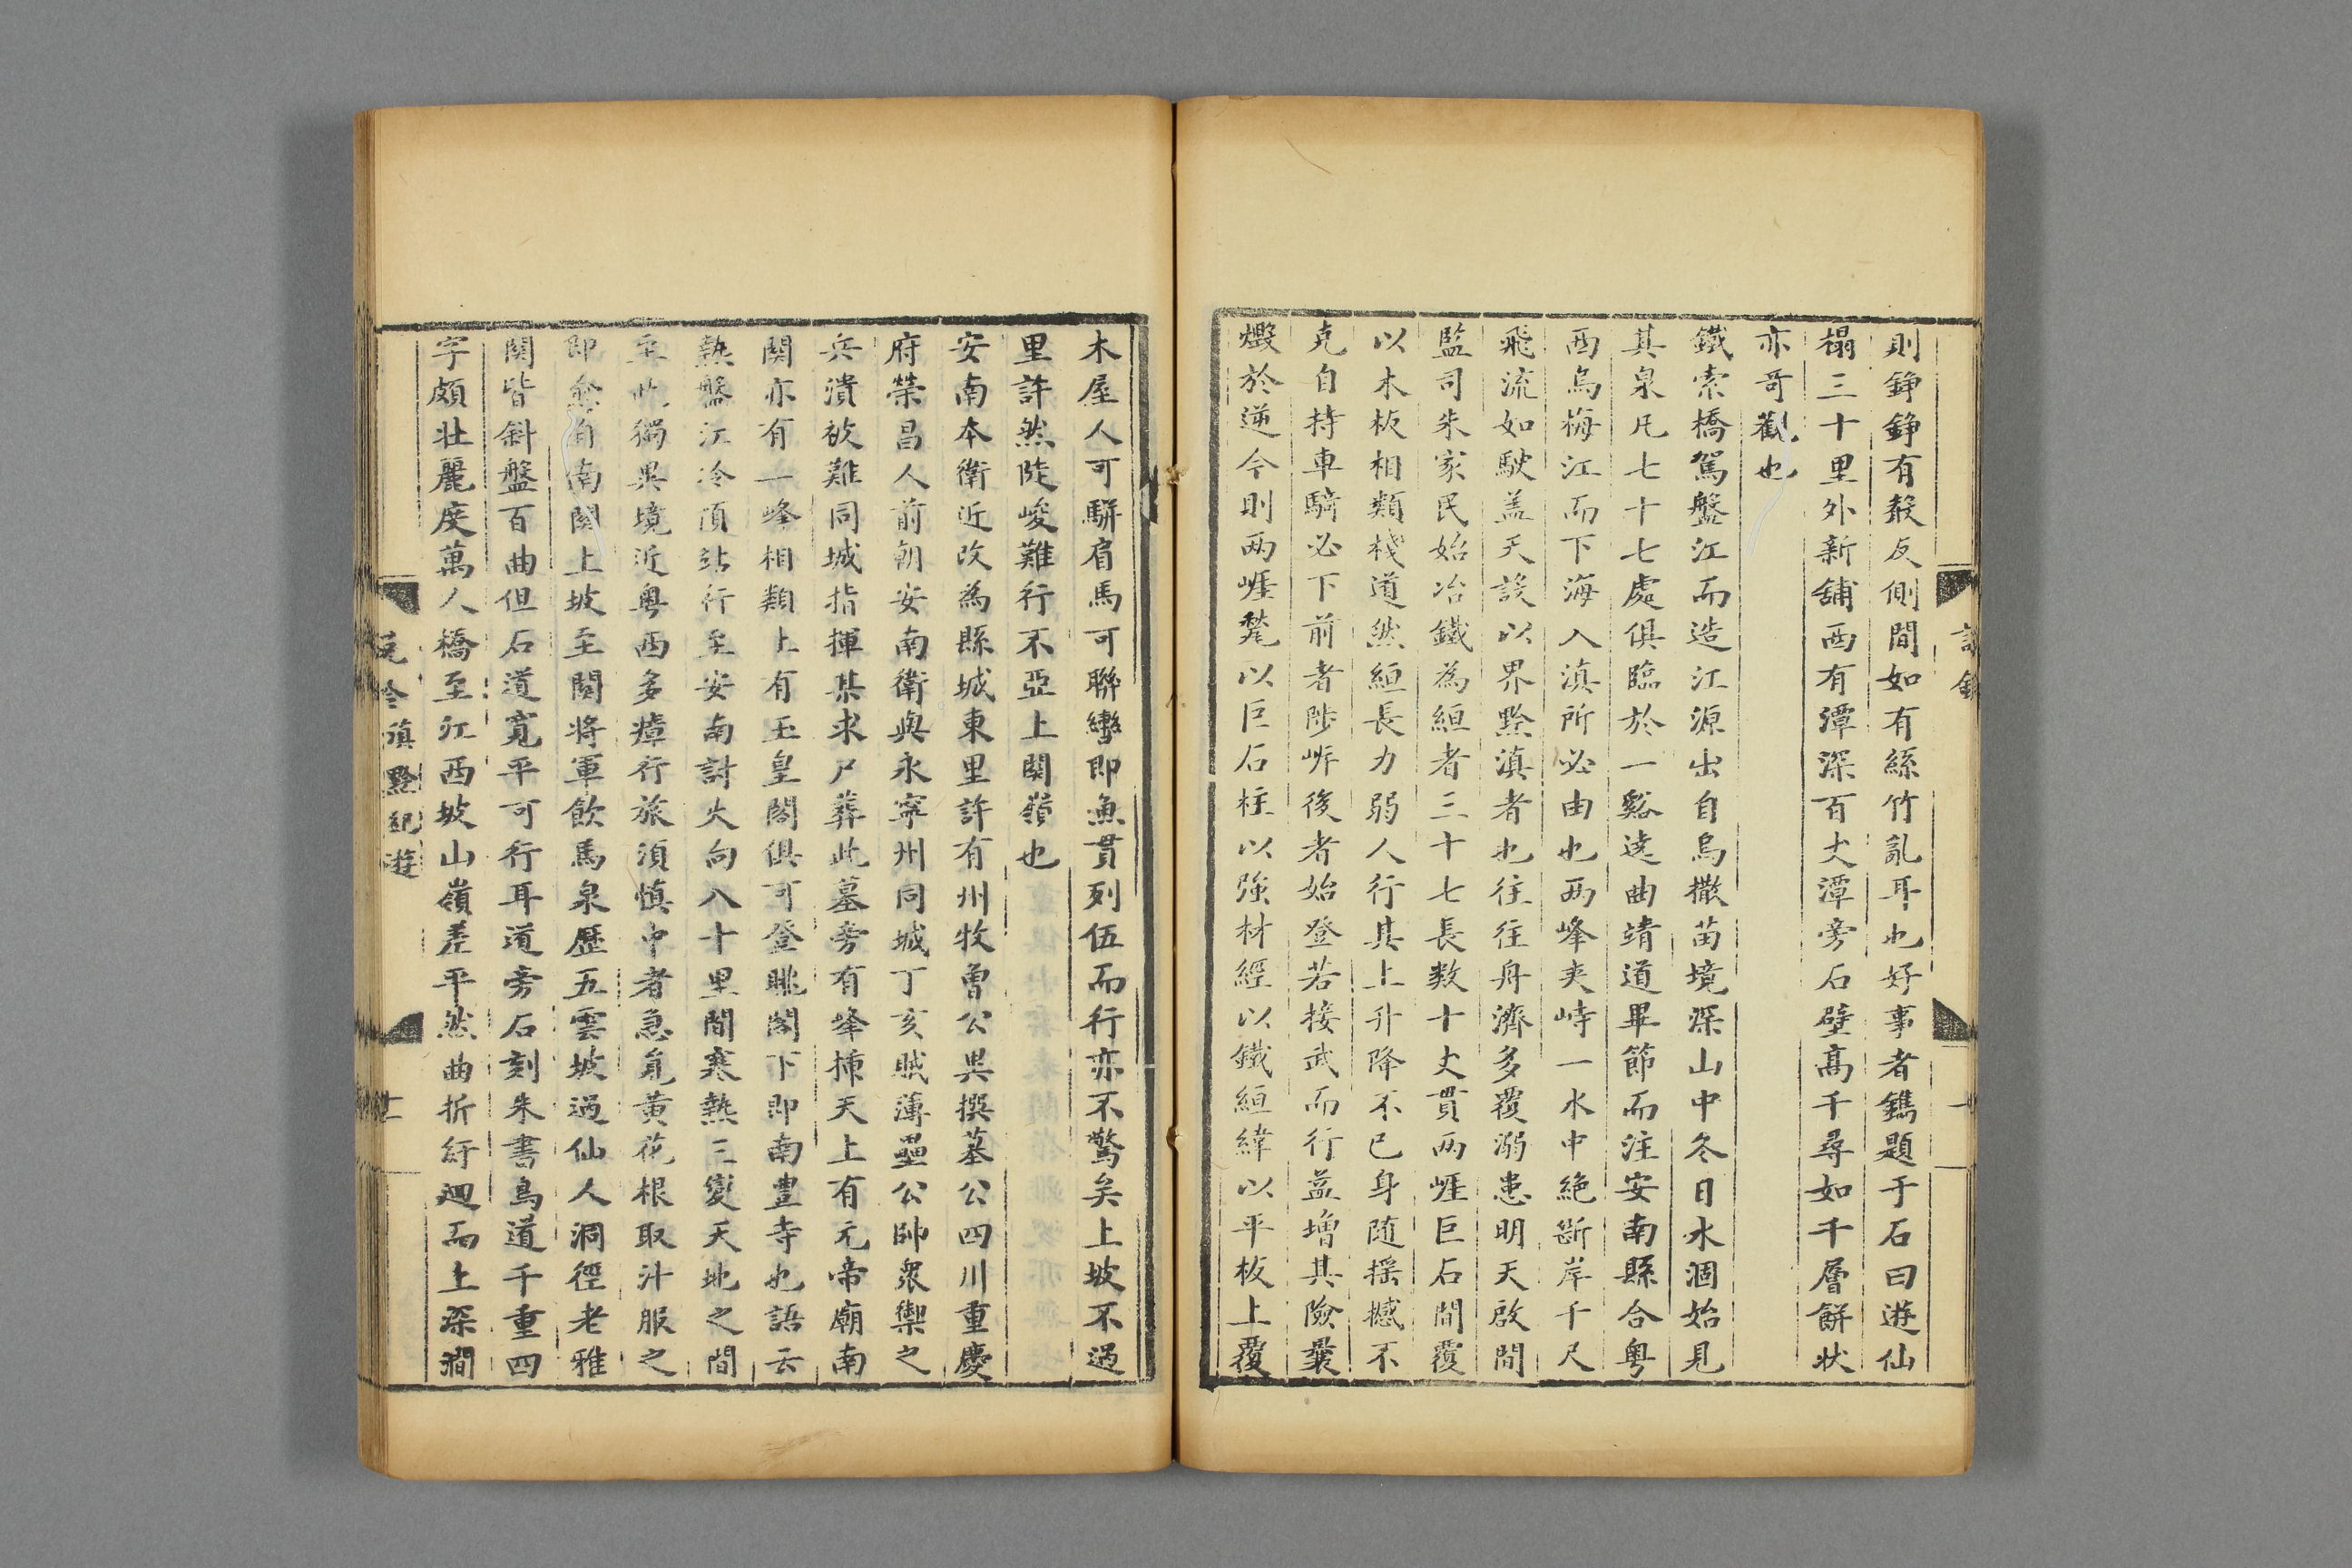 則錚錚有聲反側間如有絲竹亂耳也好事者鐫題于石曰遊仙
榻三十里外新舖西有潭深百丈潭旁石壁高千尋如千層餅狀
亦奇觀也
鐵索橋駕盤江而造江源出自烏撒苗境深山中冬日水涸始見
其泉凡七十七處俱臨於一谿遶曲靖道畢節而注安南縣合粤
西烏梅江而下海入滇所必由也两峰夾峙一水中絶斷岸千尺
飛流如駛盖天設以界黔滇者也往往舟濟多覆溺患明天啟間
監司朱家民始冶鐵為絙者三十七長数十丈貫两崕巨石間覆
以木板相類棧道然絙長力弱人行其上升降不已身随揺撼不
克自持車騎必下前者陟㟁後者始登若接武而行益增其險曩
燬於逆今則两崕甃以巨石柱以強材經以鐵絙緯以平板上覆
木屋人可駢肩馬可聯轡即魚貫列伍而行亦不驚矣上坡不過
里許然陡峻難行不亞上関嶺也
安南本衛近改為縣城東里許有州牧曽公異撰墓公四川重慶
府榮昌人前朝安南衛與永寧州同城丁亥賊薄壘公帥衆禦之
兵潰被難同城指揮某求尸葬此墓旁有峰揷天上有元帝廟南
関亦有一峰相類上有玉皇閣俱可登眺閣下即南豊寺也語云
熱盤江冷頂站行至安南討火向八十里間寒熱三變天地之間
至此獨異境近粤西多瘴行旅湏慎中者急覔黄花根取汁服之
即愈自南関上坡至関將軍飲馬泉歴五雲坡過仙人洞徑老雅
関皆斜盤百曲但石道寛平可行耳道旁石刻朱書鳥道千重四
字頗壮麗度萬人橋至江西坡山嶺差平然曲折紆廻而上深澗
滇黔紀遊